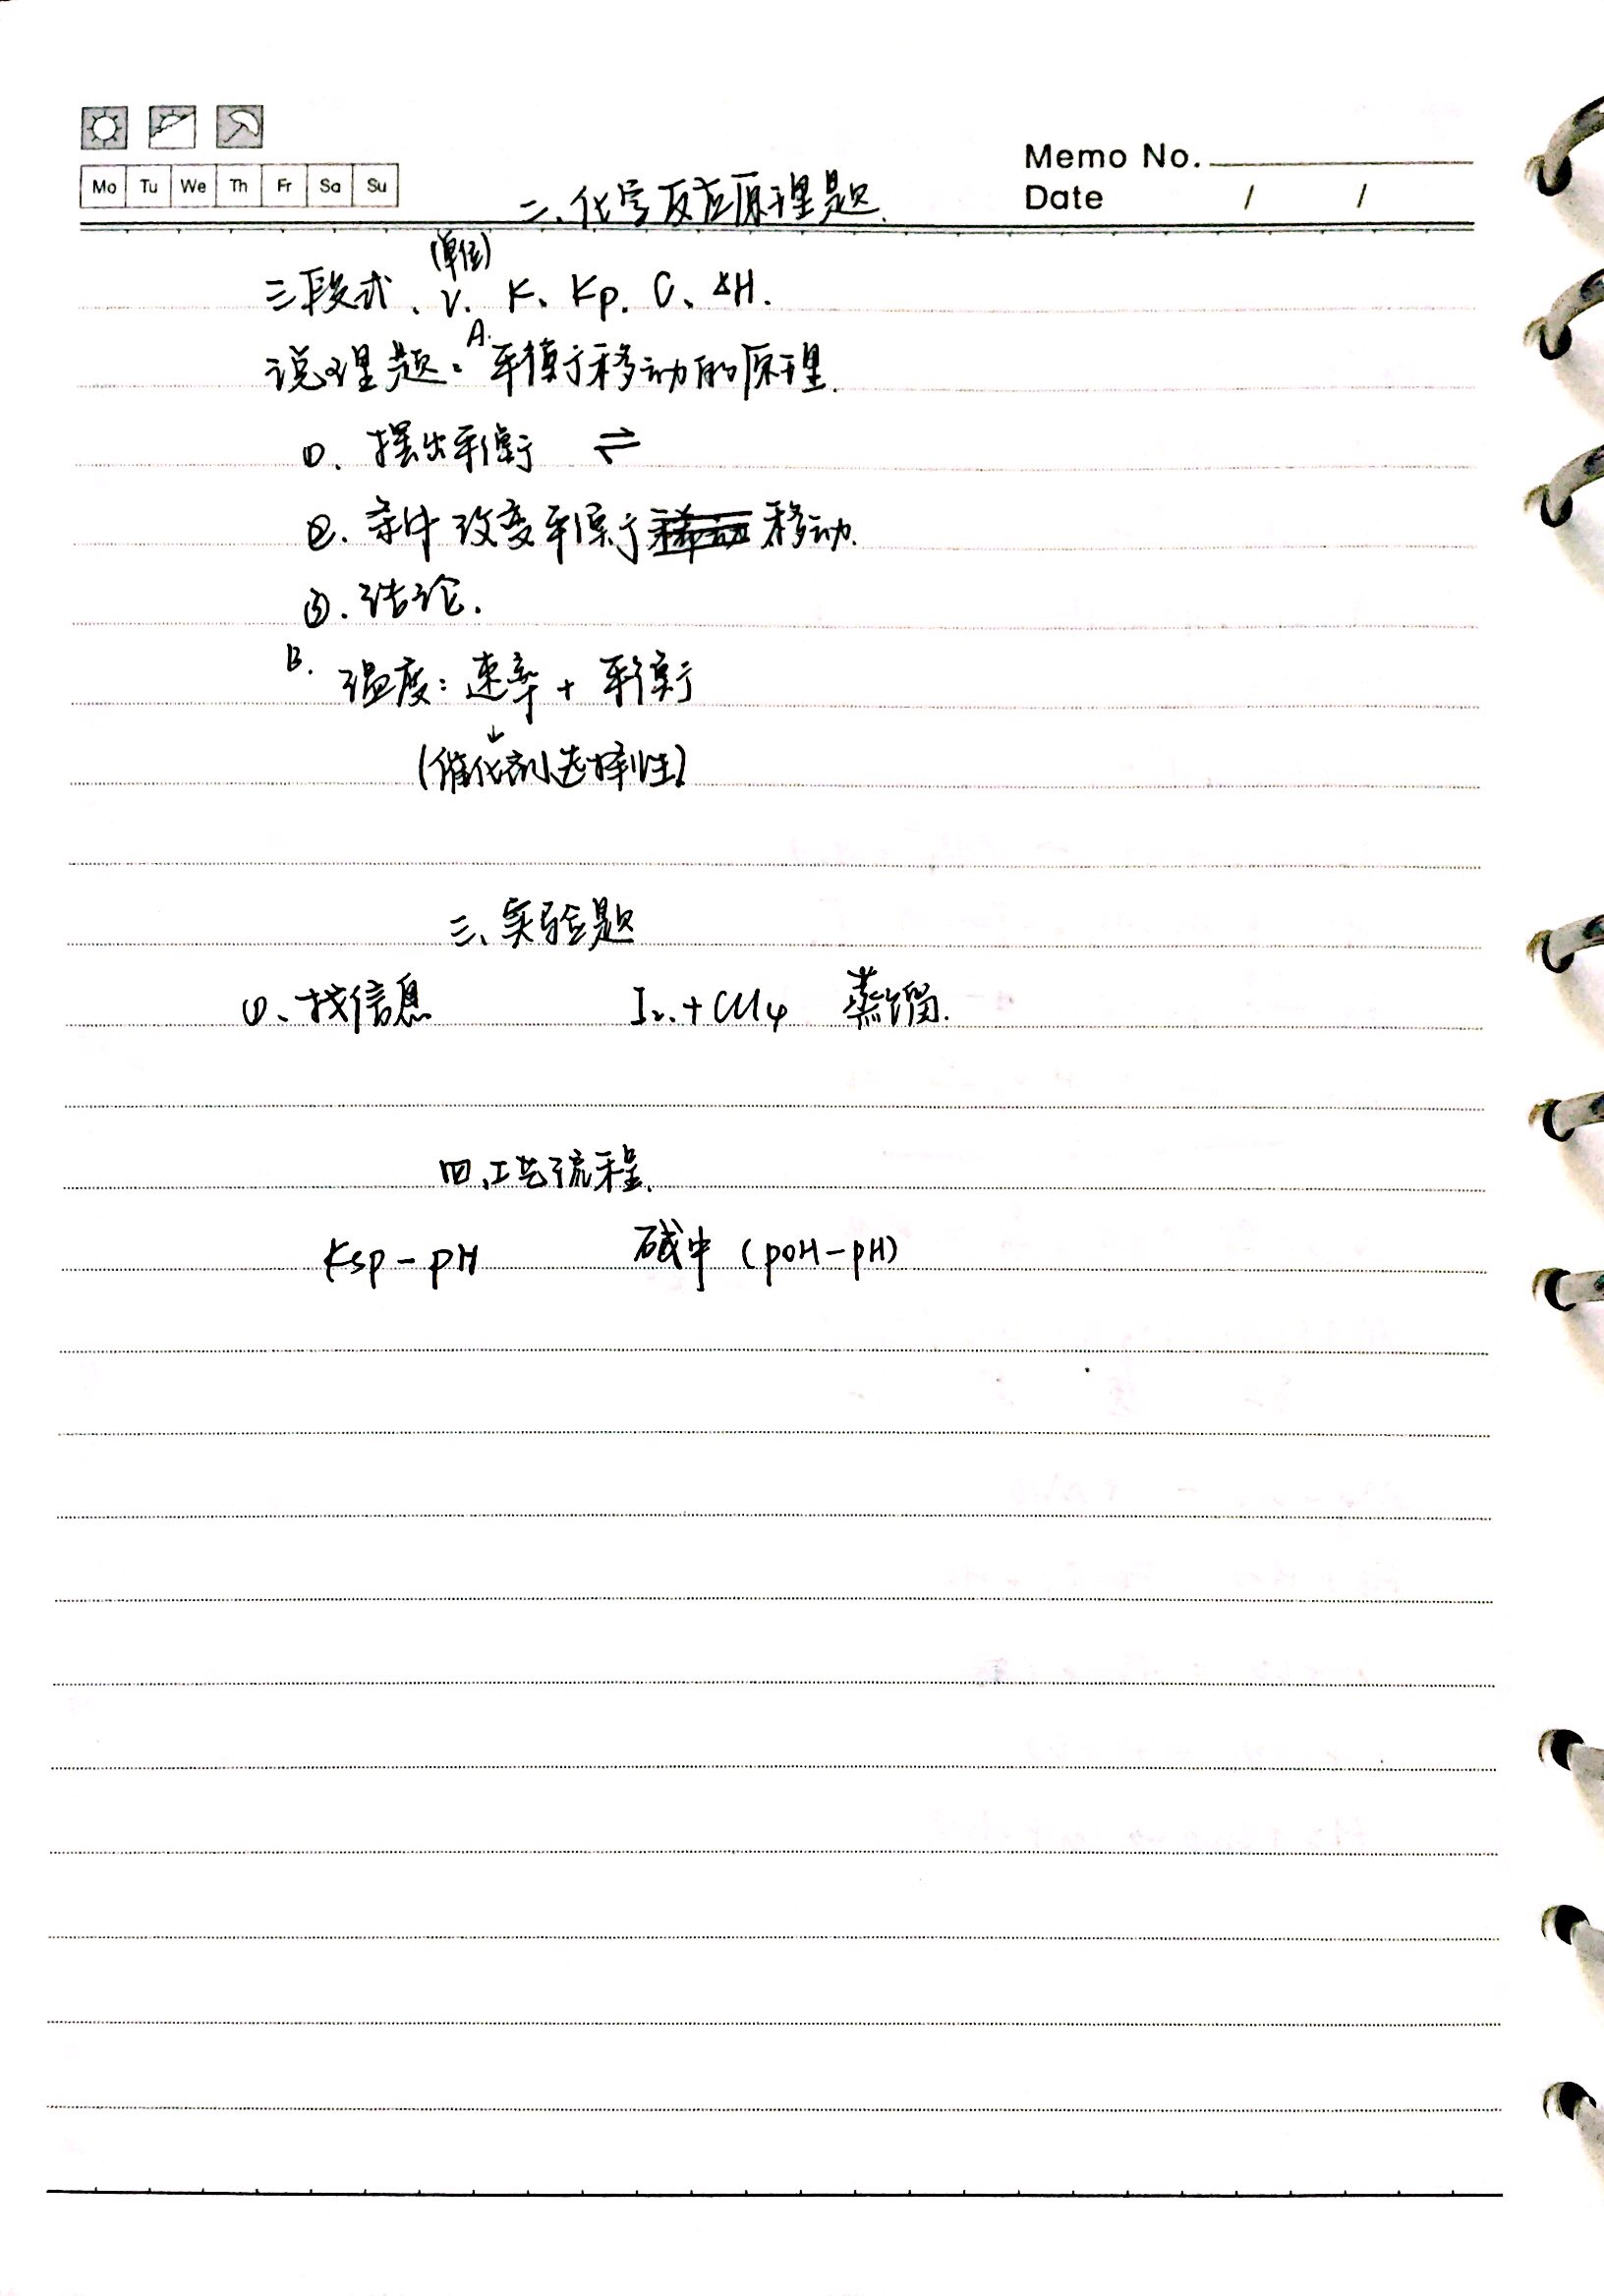 Memo No.
Mo Tu We Th Fr Sa Su
Date / /
二、化学反应原理题.
(单位)
三段式、v、K、Kp、C、△H.
说理题: A. 平衡移动的原理.
①、摆出平衡 ⇌
②、条件改变平衡移动.
③、结论.
B. 温度: 速率 + 平衡
↓
(催化剂选择性)
三、实验题
①、找信息 I₂+CCl₄ 蒸馏.
四、工艺流程.
Ksp-pH 碱中 (pOH-pH)